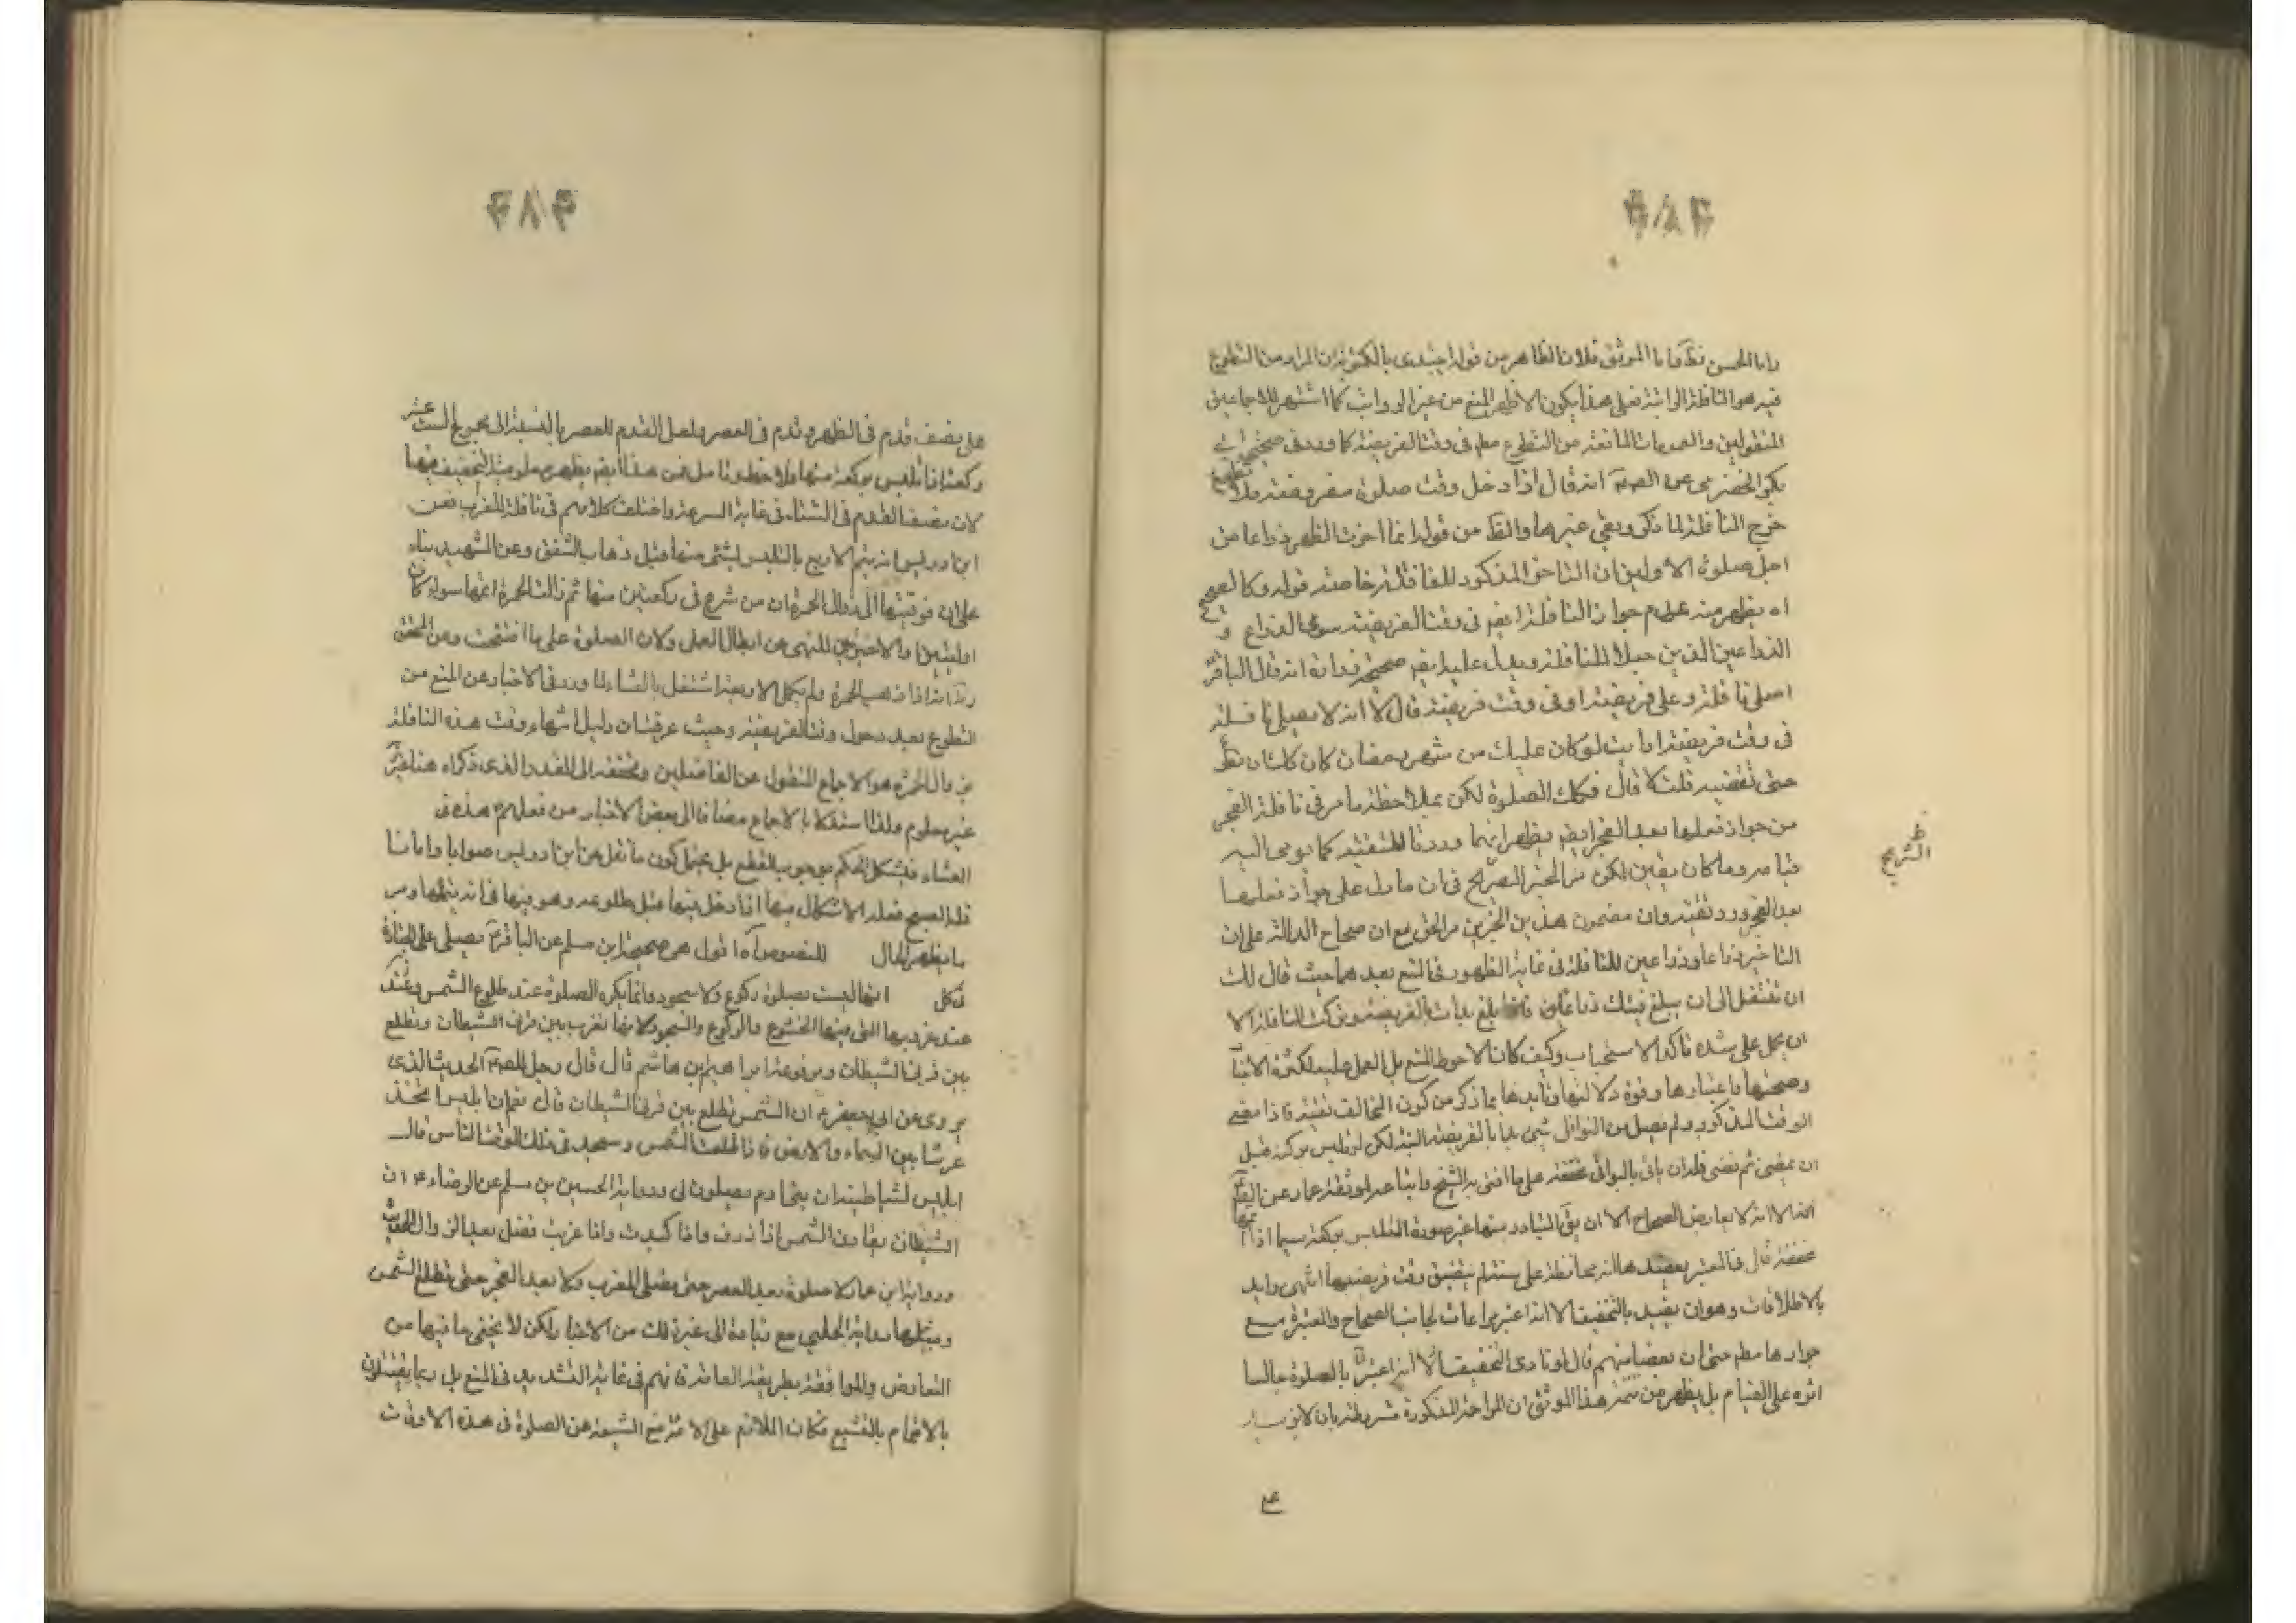 واما الحسن فظ واما الموثق فلان الظاهر من قوله ابتدى بالمكتوبة ان المراد من التطوع
فيه هو النافلة الراتبة فعلى هذا يكون الاظهر المنع من غير الرواتب كما اشتهر للاجماعين
المنقولين والعمومات المانعة من التطوع مطم فى وقت الفريضة كما ورد فى صحيحة ابى
بكر الحضرمى عن الصم انه قال اذا دخل وقت صلوة مفروضة فلا تطوع
خرج النافلة لما ذكر وبقى غيرها والظ من قوله انما اخرت الظهر ذراعا من
اجل صلوة الاولين ان التاخر المذكور للنافلة خاصة قوله وكالصحيح
اه يظهر منه عدم جواز النافلة ايضم فى وقت الفريضة سوى الذراع و
الذراعين الذين جعلا للنافلة ويدل عليه ايضم صحيحة زرارة انه قال الباقر
اصلى نافلة وعلى فريضة او فى وقت فريضة قال لا انه لا يصلى نافلة
فى وقت فريضة ارايت لو كان عليك من شهر رمضان كان لك ان تطوع
حتى تقضيه قلت لا قال فكك الصلوة لكن بملاحظة ما مر فى نافلة الفجر
من جواز فعلها بعد الفجر ايضم يظهر انهما وردتا للتقية كما يومى اليه
الصريح
فيامره وما كان يقين لكن من الخبر الصريح فى ان ما دل على جواز فعلها
بعد الفجر ورد تقية وان مضمون هذين الخبرين من الحق مع ان صحاح الدالة على ان
التاخير ذراعا وذراعين للنافلة فى غاية الظهور فى المنع بعدهما حيث قال لك
ان تتنفل الى ان يبلغ فيئك ذراعا فاذا بلغ بدات بالفريضة وتركت النافلة الا
ان يحمل على شدة تاكد الاستحباب وكيف كان الاحوط المنع بل العمل عليه لكثرة الاخبار
وصحتها واعتبارها وقوة دلالتها وتايدها بما ذكر من كون المخالف تقية فاذا مضى
الوقت المذكور ولم يصل من النوافل شى بدا بالفريضة البتة لكن لو تلبس بركعة قبل
ان يمضى ثم مضى فله ان ياتى بالبواقى مخففة على ما افتى به الشيخ واتباعه لموثقة عمار عن الصم
الا انه لا يعارض الصحاح الا ان يق المتبادر منها غير صورة التلبس بركعة سيما اذا اتمها
مخففة قال فى المعتبر يعضدها انه محافظة على سنة لم يتضيق وقت فريضتها انتهى وايد
بالاطلاقات وهو ان يقيد بالتخفيف الا انه اعتبر مراعات لجانب الصحاح والمعتبرة مع
جوازها مطم حتى ان بعضا منهم قال لو تادى التخفيف بالصلوة جالسا
اثره على القيام بل يظهر من تتمة هذا الموثق ان المزاحمة المذكورة مشروطة بان لا
٤٨٣
على نصف قدم فى الظهر وقدم فى العصر ولعل القدم للعصر بالنسبة الى مجموع الست عشر
ركعة فاتلبس بركعة منها فلاحظ وتامل فمن هذا ايضم يظهر مطلوبية التخفيف فيها
لان نصف القدم فى الشتاء فى غاية السرعة واختلف كلامهم فى نافلة المغرب فعن
ابن ادريس انه يتم الاربع بالتلبس بشئ منها قبل ذهاب الشفق وعن الشهيد بناء
على ان توقيتها الى زوال الحمرة ان من شرع فى ركعتين منها ثم زالت الحمرة اتمها سواء كان
اوليتين او الاخيرتين للنهى عن ابطال العمل ولان الصلوة على ما افتتحت وعن المحقق
انه اذا ذهب الحمرة ولم يكمل الاربعة اشتغل بالعشاء لما ورد فى الاخبار عن المنع من
التطوع بعد دخول وقت الفريضة وحيث عرفت ان دليل انتهاء وقت هذه النافلة
بزوال الحمرة هو الاجماع المنقول عن الفاضلين وتحققه الى القدر الذى ذكراه هنا غير
غير معلوم ولذا استدلا بالاجماع مضافا الى بعض الاخبار من فعلهم هذه ق
العشاء فيشكل الحكم بوجوب القطع بل يحتمل كون ما نقل عن ابن ادريس صوابا واما نا
فلة الصبح فعله الاشكال فيها اذا دخل فيها قبل طلوعه وهو فيها فانه يتمها ومر
ما يظهر الحال للنصوص اه اقول هى صحيحة ابن مسلم عن الباقر يصلى على الجنازة
فى كل انها ليست بصلوة ركوع ولا سجود وانما يكره الصلوة عند طلوع الشمس وعند
عند غروبها التى فيها الخشوع والركوع والسجود لانها تغرب بين قرنى الشيطان وتطلع
بين قرنى الشيطان ومرفوعة ابراهيم بن هاشم قال قال رجل للصم الحديث الذى
يروى عن ابى جعفر ان الشمس تطلع بين قرنى الشيطان قال نعم ان ابليس اتخذ
عرشا بين السماء والارض فاذا طلعت الشمس وسجد فى ذلك الوقت الناس قال
ابليس لشياطينه ان بنى ادم يصلون لى ورواية الحسين بن مسلم عن الرضاء ان
الشيطان يقارن الشمس اذا ذرت واذا كبدت واذا غربت فصل بعد الزوال الحديث
ورواية ابن عمار لا صلوة بعد العصر حتى يصلى المغرب ولا بعد الفجر حتى تطلع الشمس
ومثلها رواية الحلبى مع زيادة الى غير ذلك من الاخبار لكن لا يخفى ما فيها من
التعارض والموافقة بطريقة العامة فانهم فى غاية التشديد فى المنع بل ربما يقتلون
بالاتهام بالتشيع فكان اللازم على الائمة منع الشيعة عن الصلوة فى هذه الاوقات